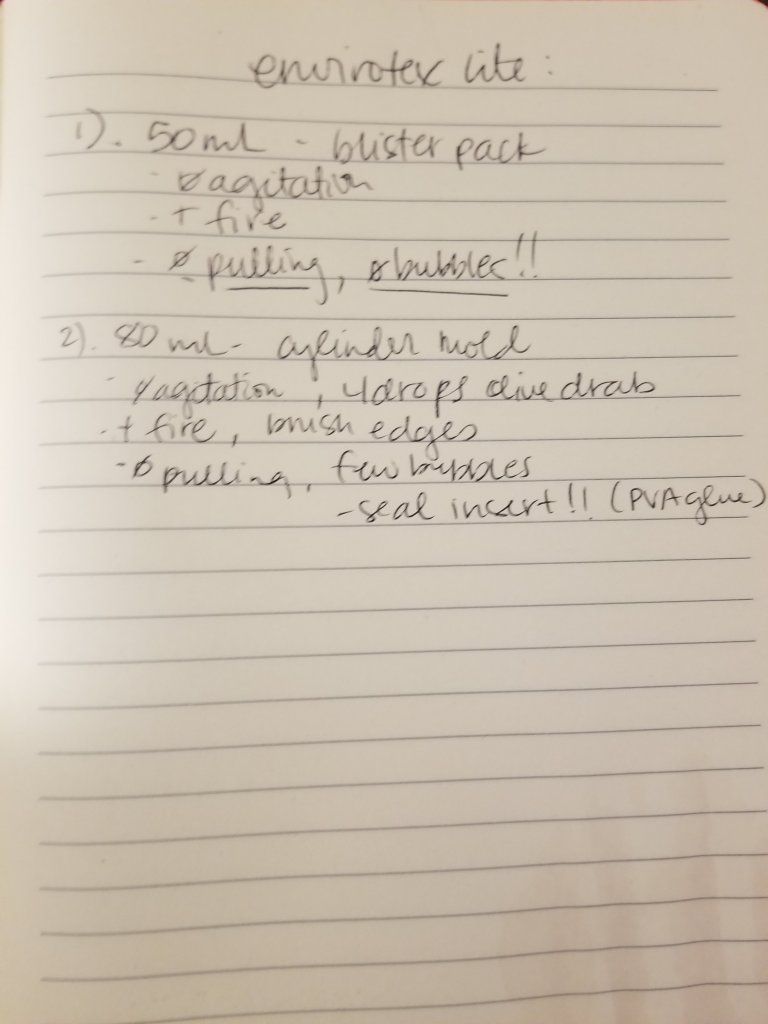 envirotex lite:
1). 50 ml - blister pack
- ø agitation
- + fire
- ø pulling, ø bubbles!!
2). 80 ml - cylinder mold
- ø agitation, 4 drops olive drab
- + fire, brush edges
- ø pulling, few bubbles
- seal insert!! (PVA glue)